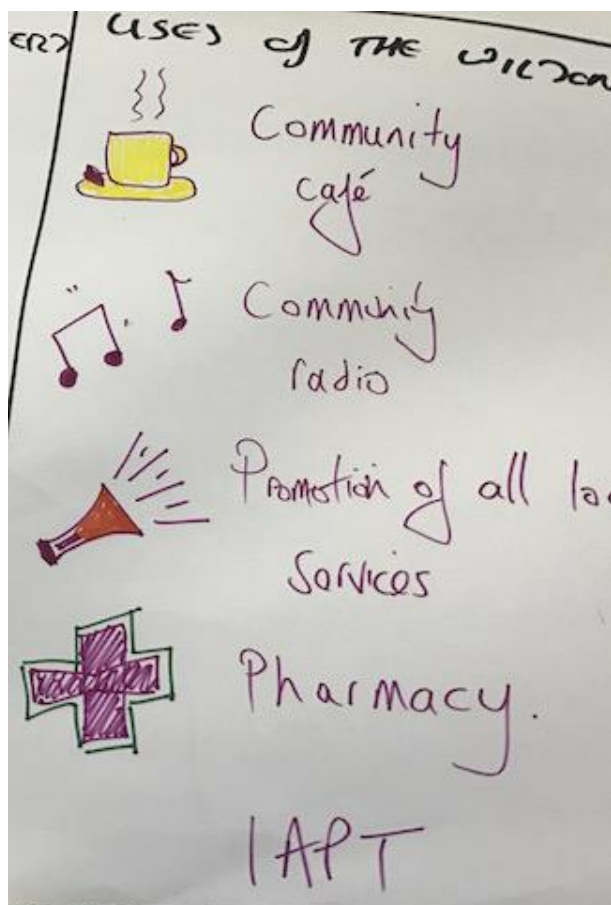 USES of THE WILSON
Community
café
Community
radio
Promotion of all
Services
Pharmacy.
IAPT